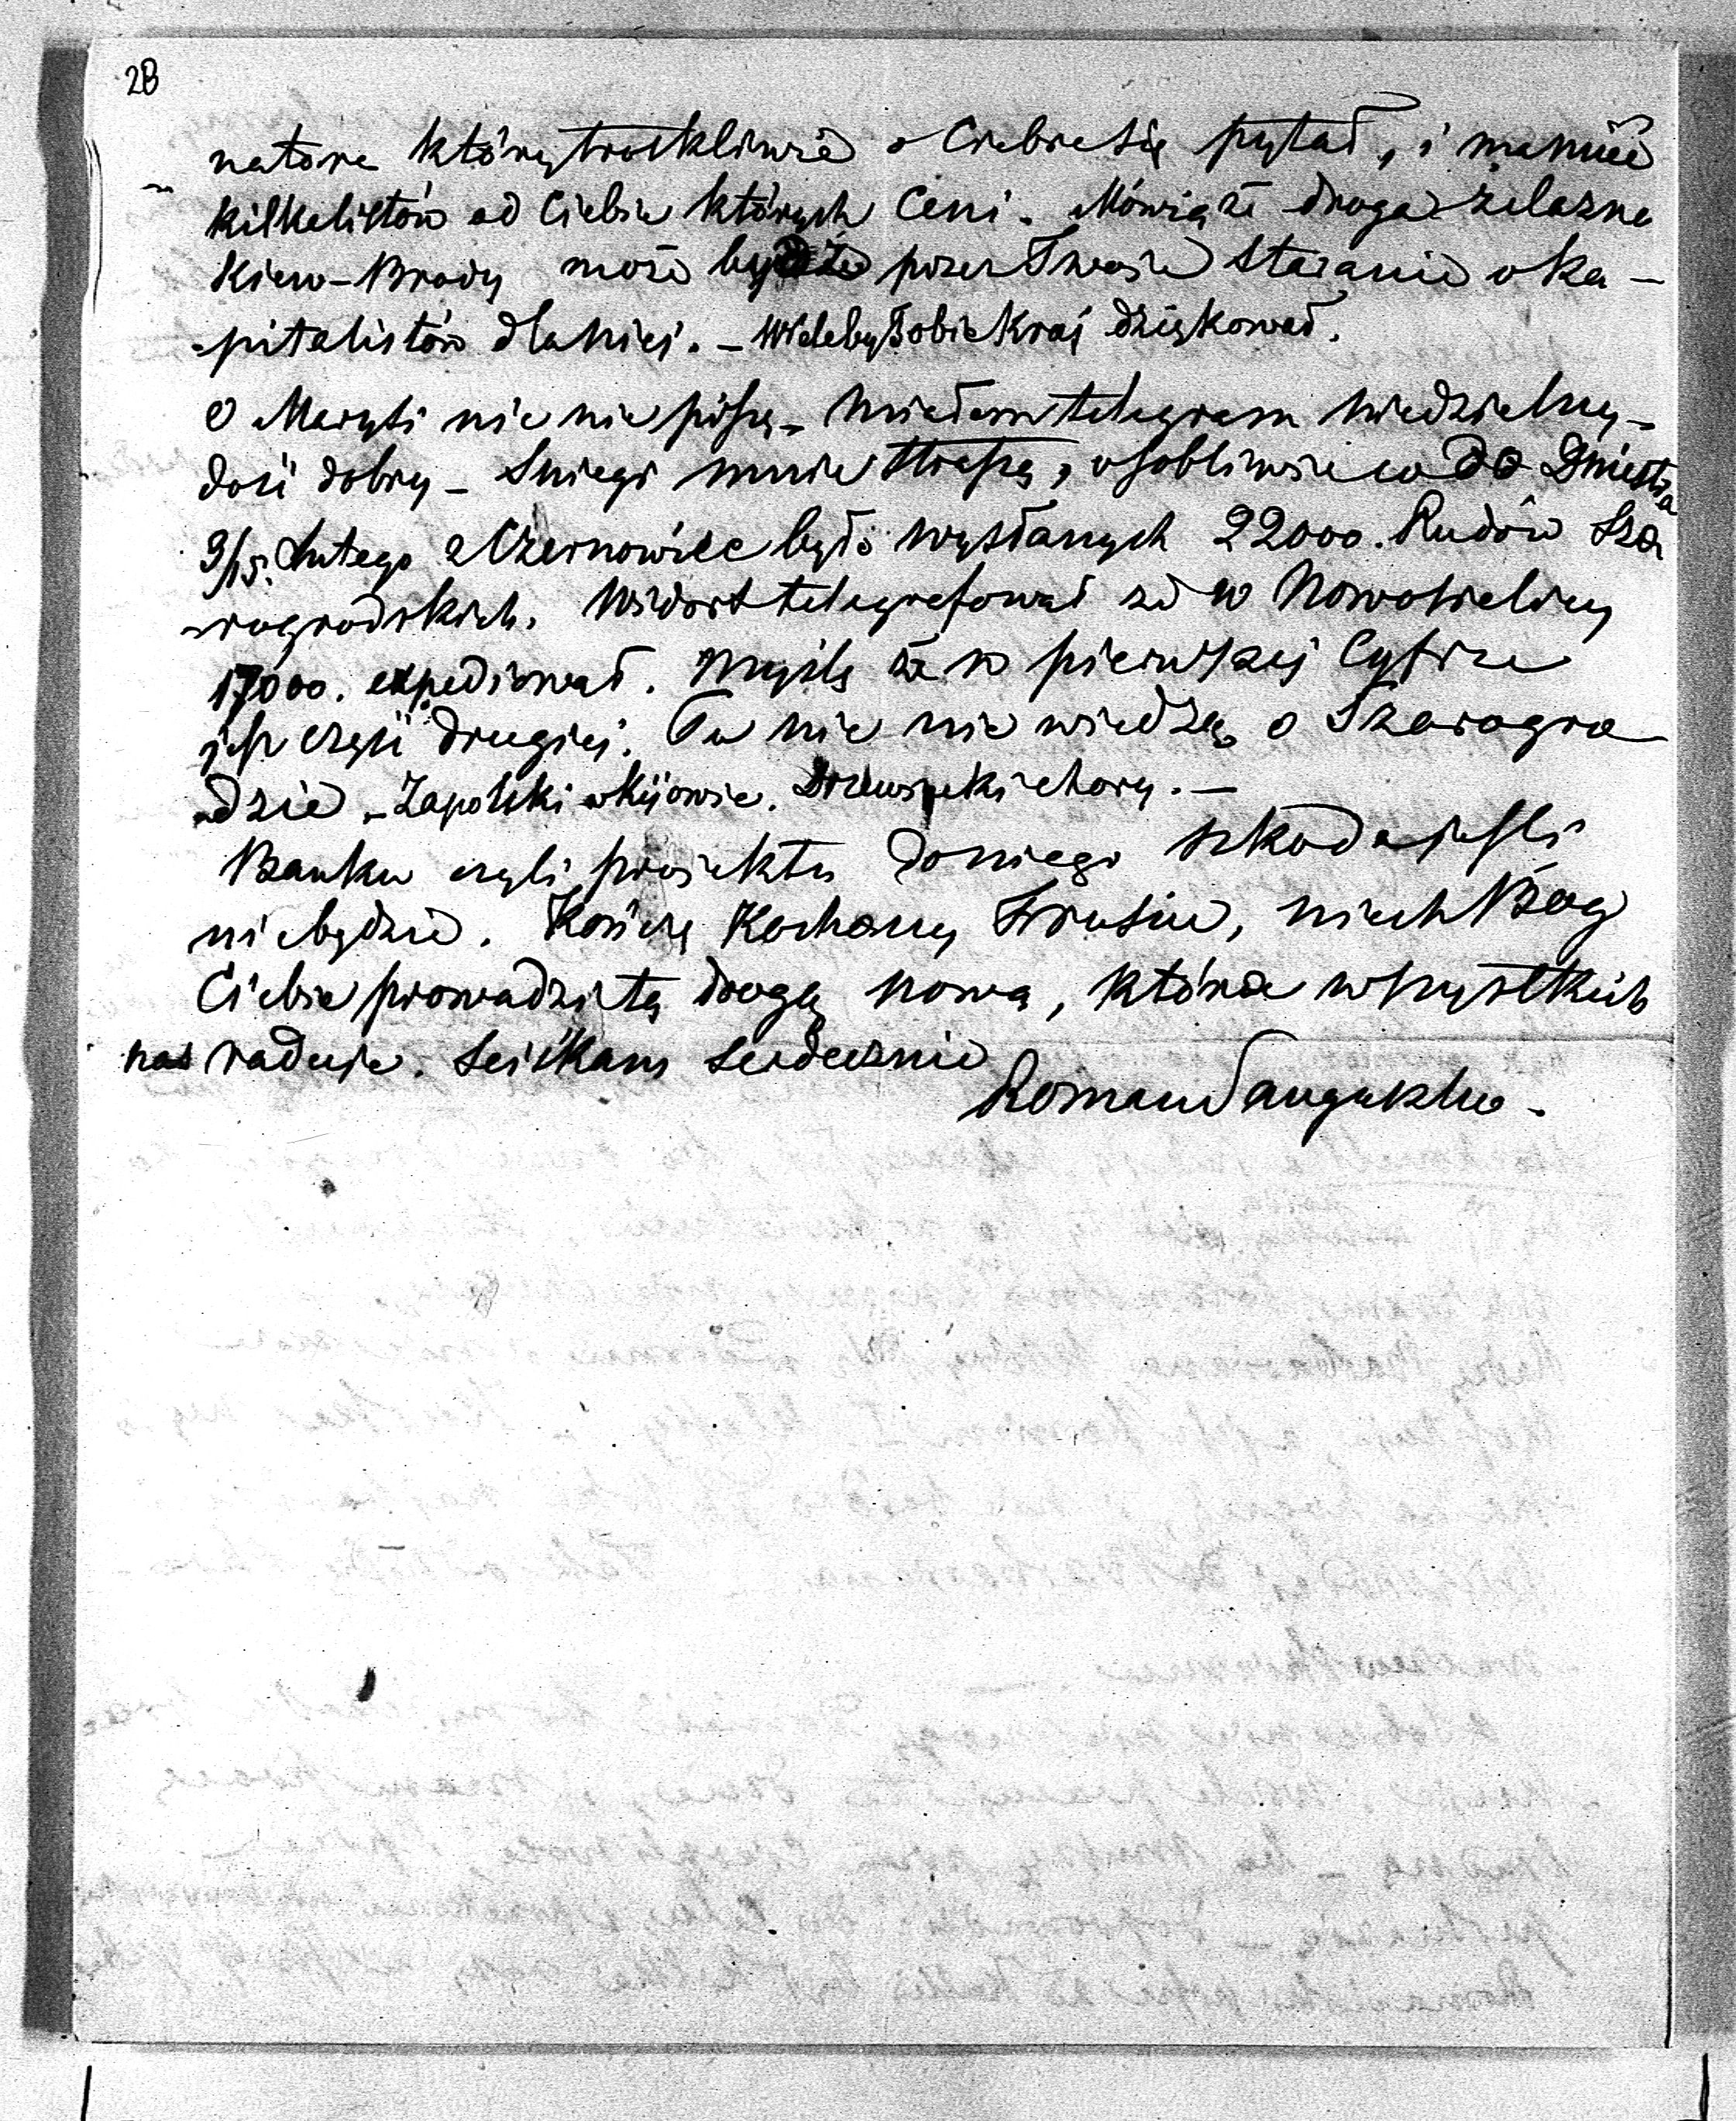 28
natora który troskliwie o Ciebie się pytał, i ma
kilka listów od Ciebie których Ceni. Mówią że droga żelazna
Kiew-Brody może przez Twoje staranie o ka-
pitalistów dla niej. – Wieleby Tobie Kraj dziękował.
O Marysi nic nie piszę – miałem telegram niedzielny –
dość dobry – Sniegi mnie straszą, osobliwie co do Dniestra
3/15. Lutego z Czernowiec było wysłanych 22000. Pudów Sza
rogrodskich. telegrafował że w Nowosielicy
17000. expediował. Myślę że w pierwszej Cyfrze
jest część drugiej. Tu nic nie wiedzą o Szarogro
dzie – Zapolski w Kijowie. chory. –
Banku czyli projektu do niego szkoda jesli
niebędzie. Kończę Kochany Trusiu, niech Bóg
Ciebie prowadzi tą drogą nową, która wszystkich
nas raduje. Sciskam serdecznie
Roman Sanguszko.